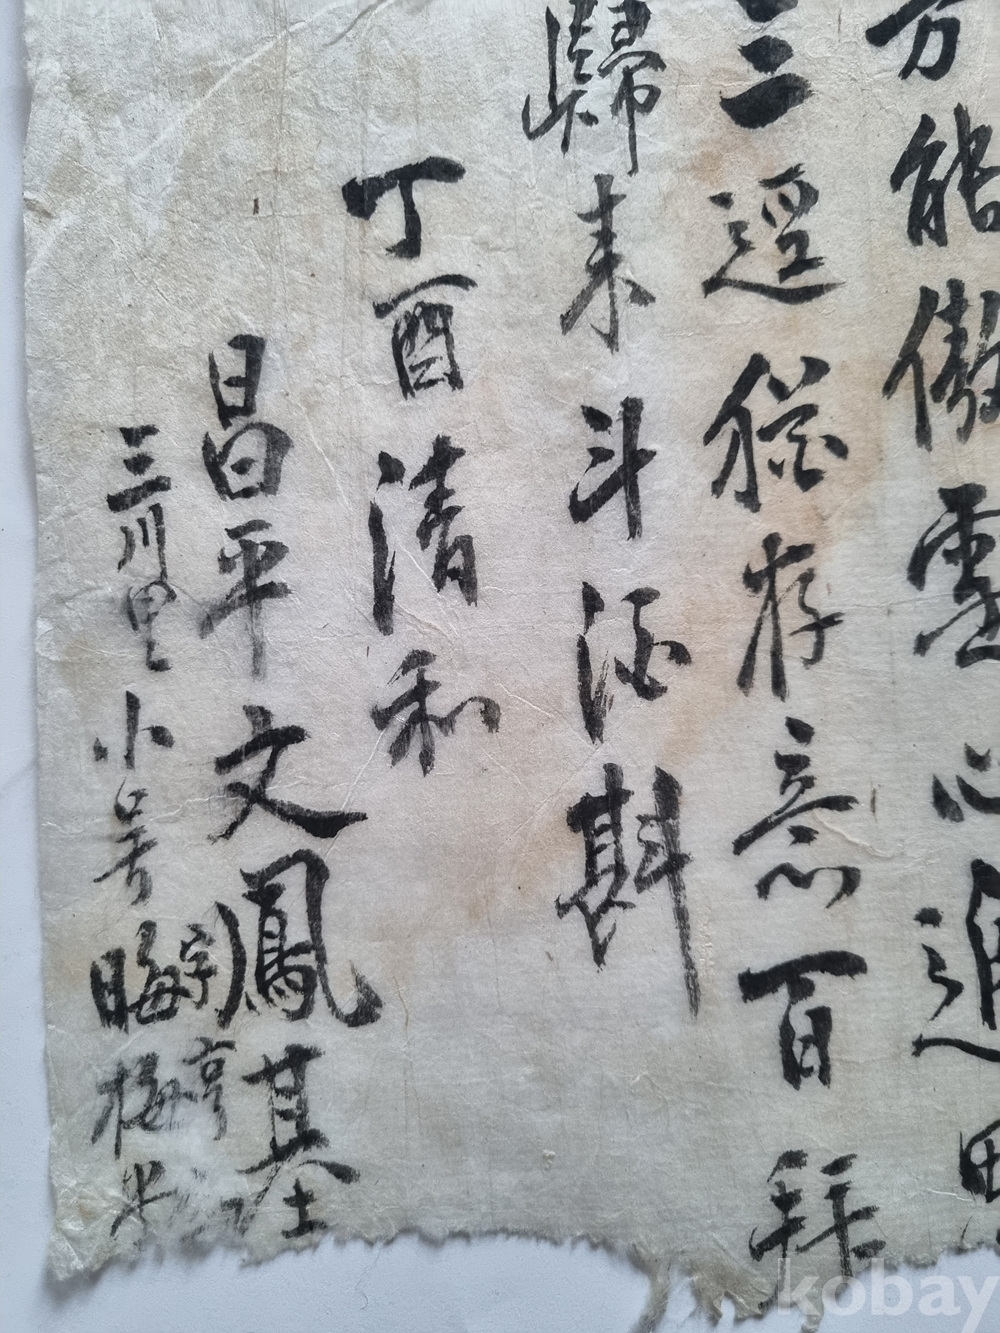 方能傲雪心追思
三逕猶存意百拜
歸來斗酒斟
丁酉淸和
昌平文鳳基
字亨
三川里小号晦梅
kobay